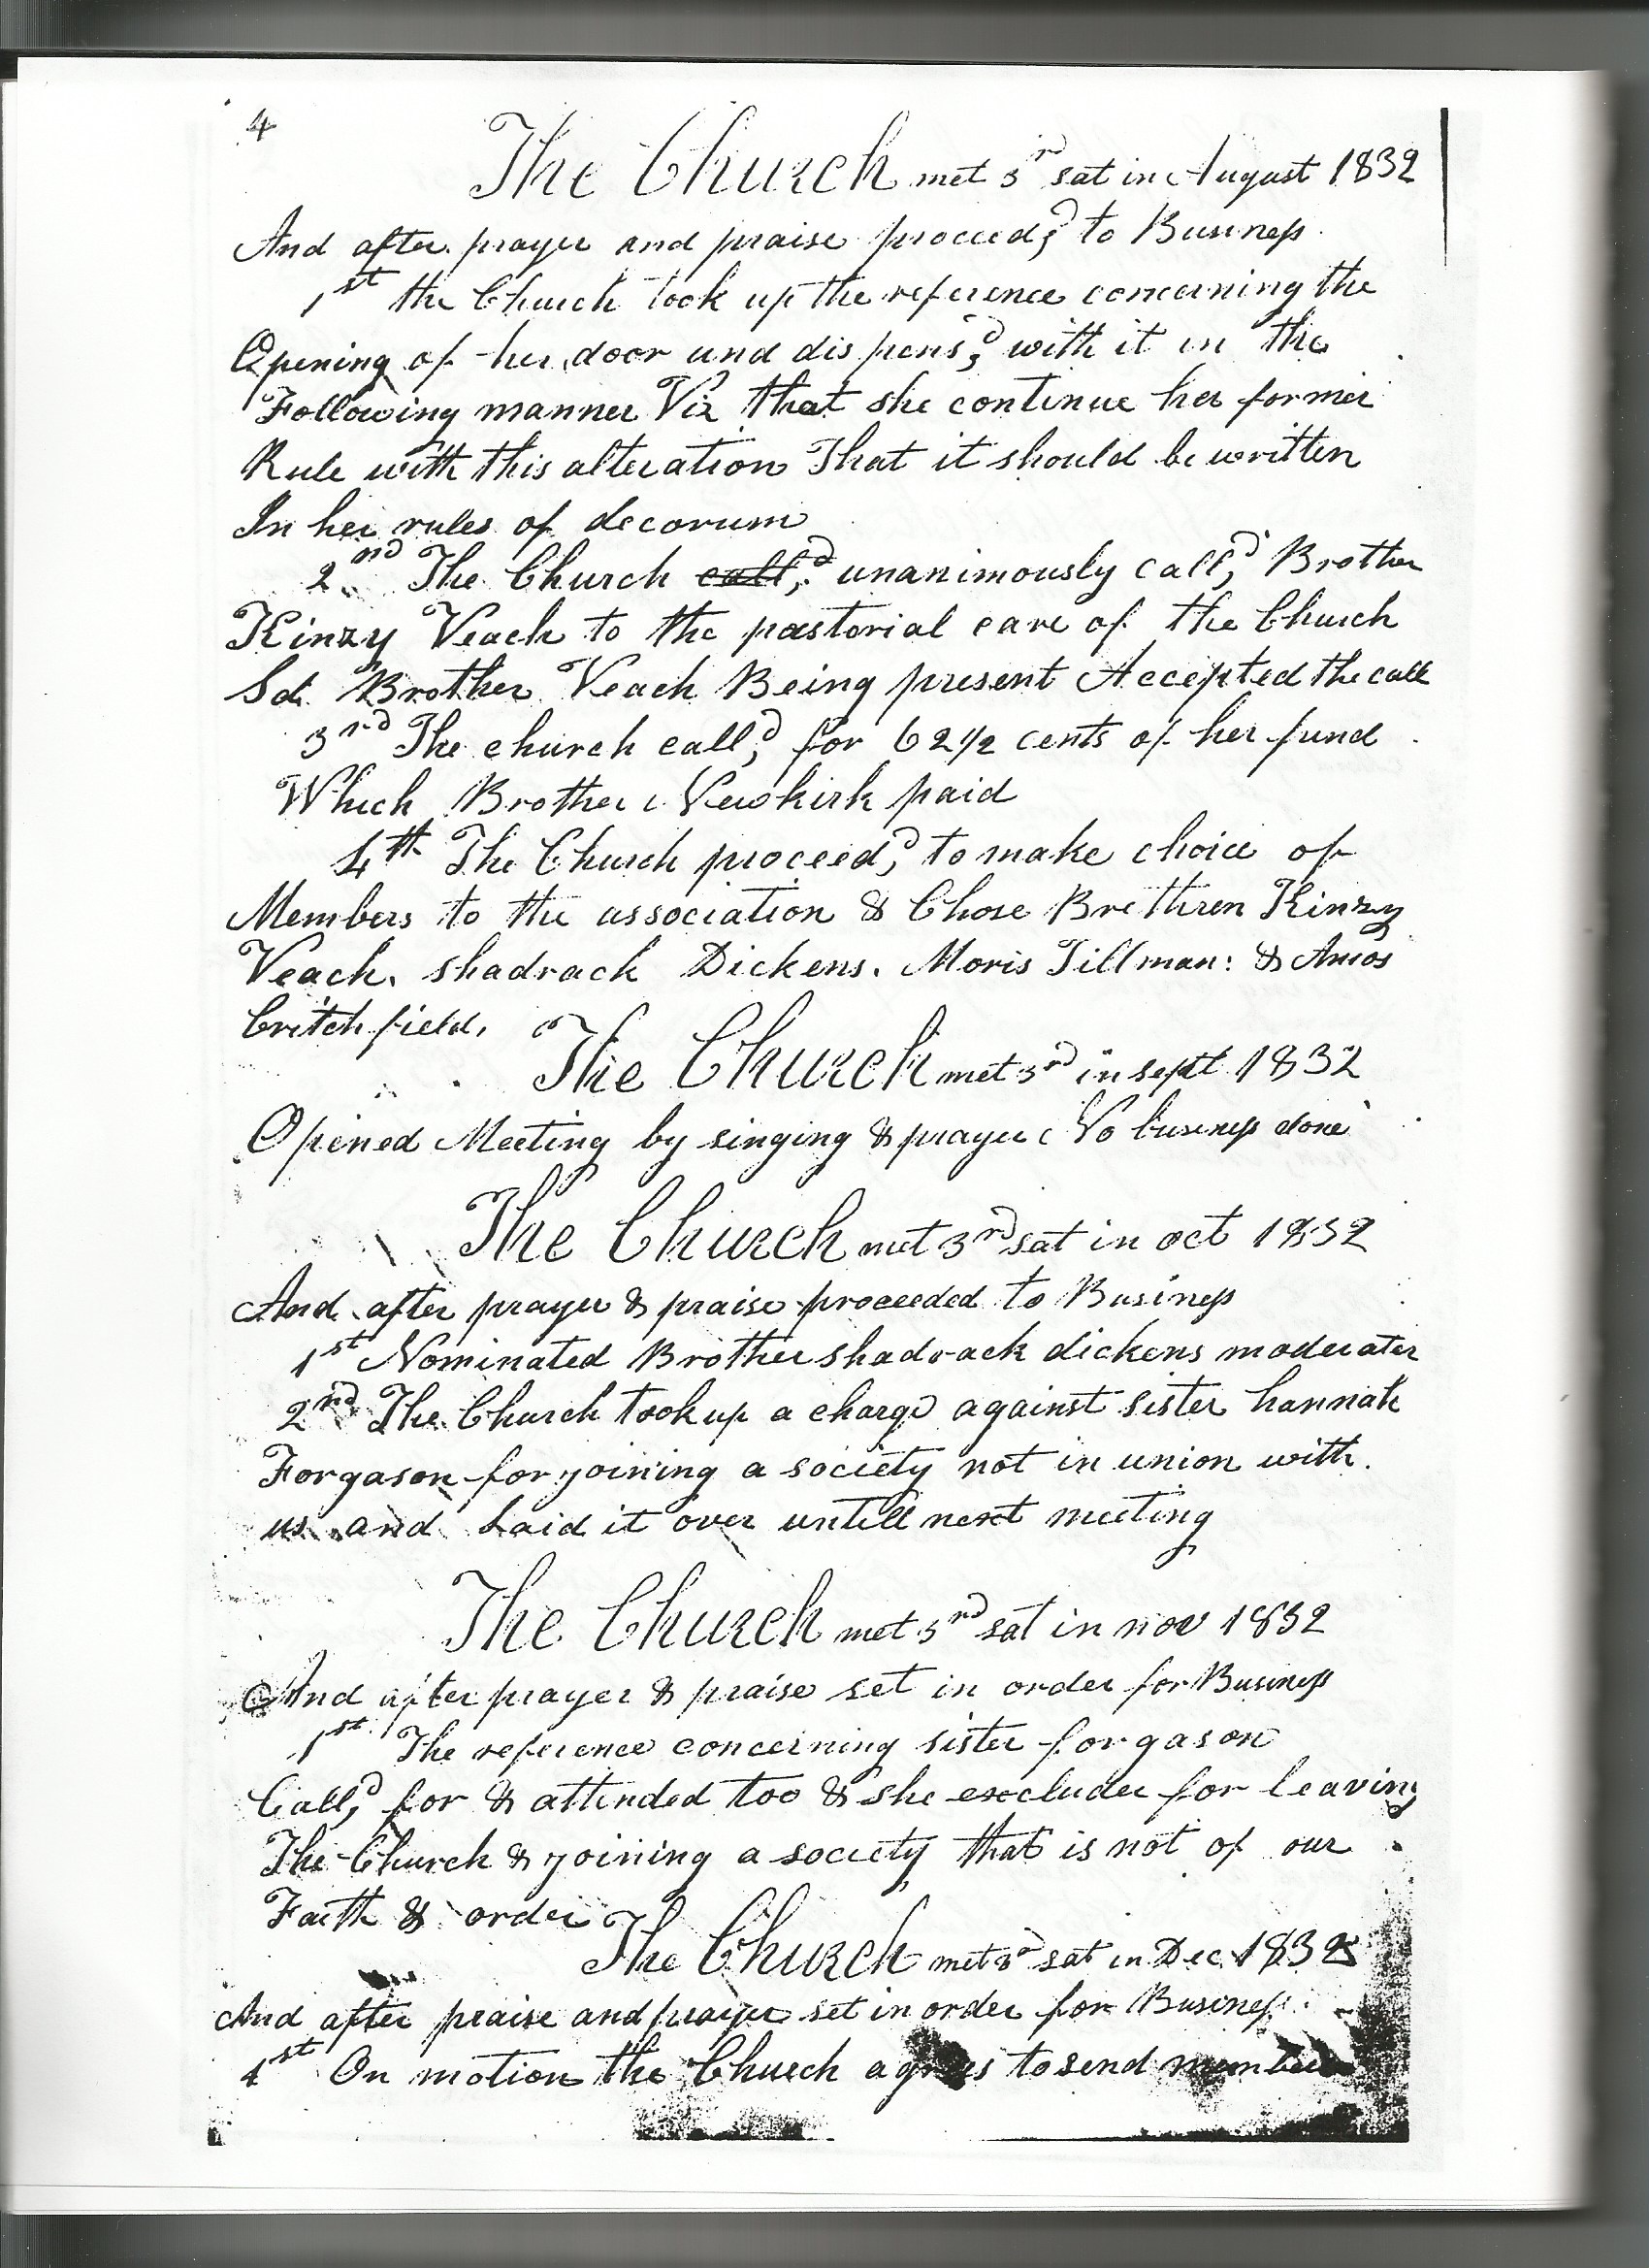 4
The Church met 3rd sat in August 1832
And after prayer and praise proceed,d to Business
1st the Church took up the reference concerning the
Opening of her door and dispens,d with it in the
Following manner Viz that she continue her former
Rule with this alteration That it should be written
In her rules of decorum
2nd The Church call,d unanimously call,d Brother
Kinzy Veach to the pastorial care of the Church
Sd Brother Veach Being present Accepted the call
3rd The church call,d for 62 1/2 cents of her fund
Which Brother Newkirk paid
4th The Church proceed,d to make choice of
Members to the association & Chose Brethren Kinzy
Veach. shadrack Dickens. Moris Tillman: & Amos
Critchfield.
The Church met 3rd in sept 1832
Opened Meeting by singing & prayer No business done
The Church met 3rd sat in oct 1832
And after prayer & praise proceeded to Business
1st Nominated Brother shadrack dickens moderater
2nd The Church took up a charge against sister hannah
Forgason for joining a society not in union with
us and Laid it over untill next meeting
The Church met 3rd sat in nov 1832
And after prayer & praise set in order for Business
1st The reference concerning sister forgason
Call,d for & attended too & she excluded for leaving
The Church & joining a society that is not of our
Faith & order
The Church met 3rd sat in Dec 1832
And after praise and prayer set in order for Business
1st On motion the Church agrees to send members